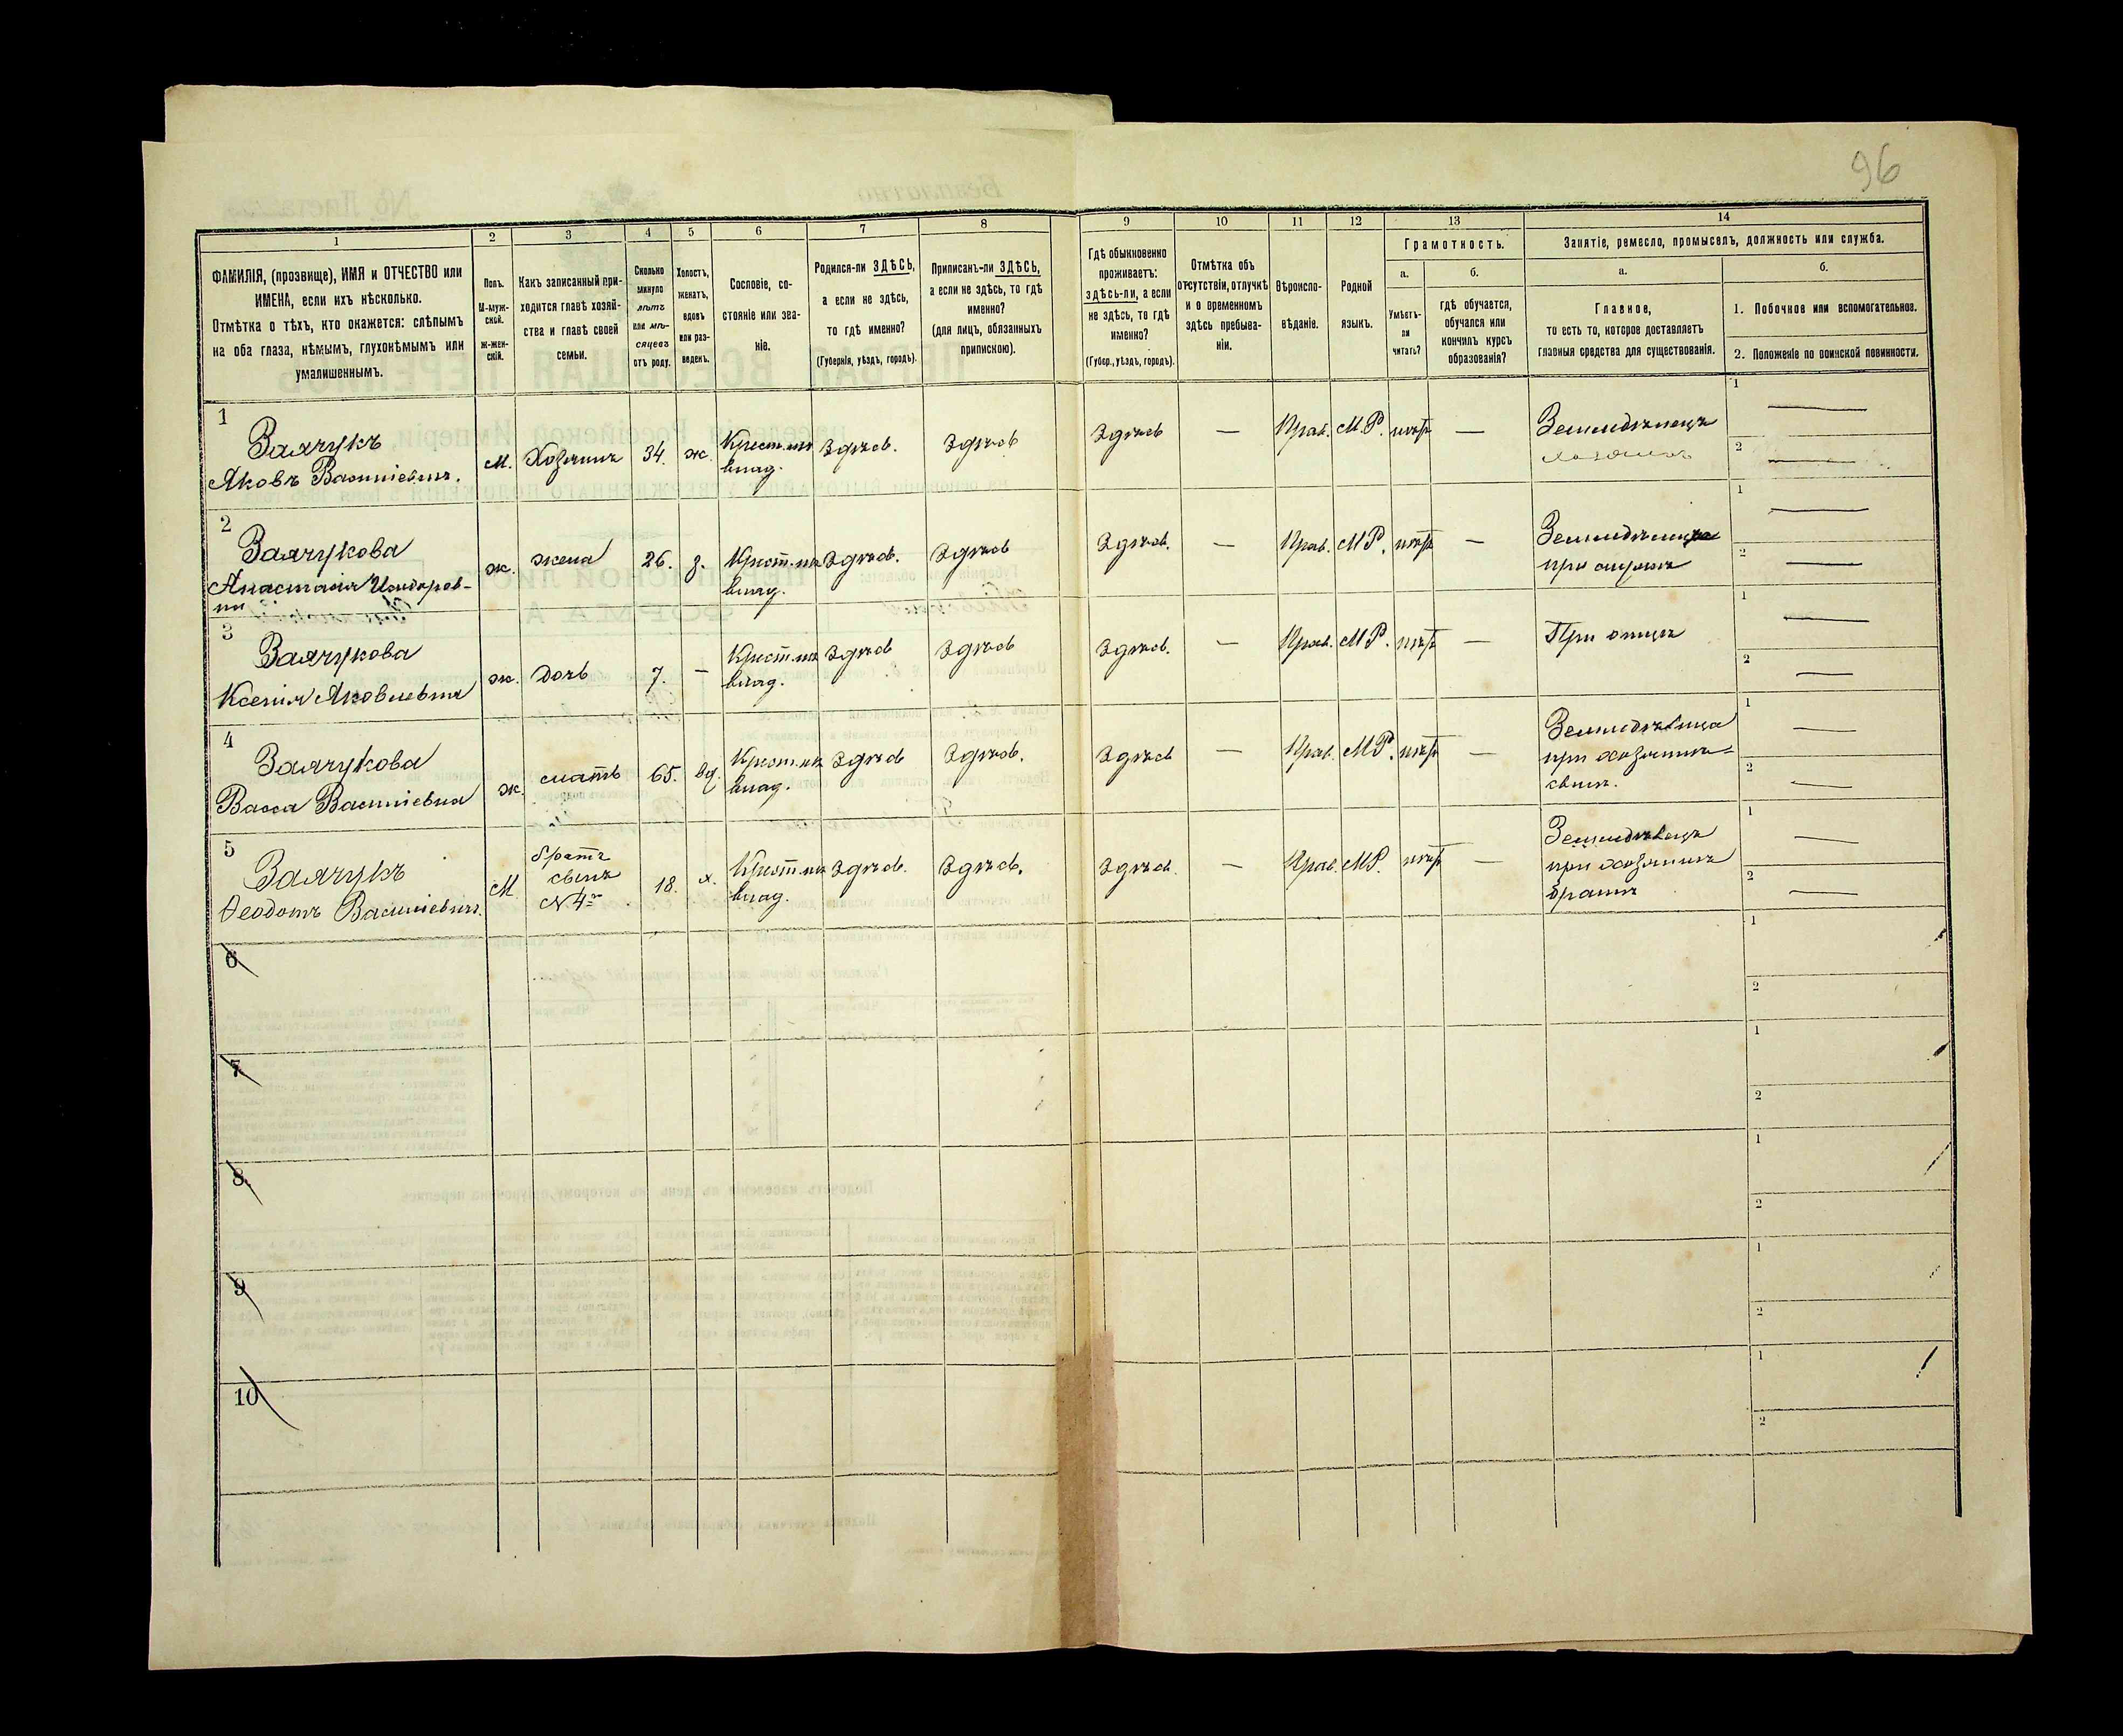 96
1
2
3
4
5
6
7
8
9
10
11
12
13
14
ФАМИЛІЯ, (прозвище), ИМЯ и ОТЧЕСТВО или
ИМЕНА, если ихъ нѣсколько.
Отмѣтка о тѣхъ, кто окажется: слѣпымъ
на оба глаза, нѣмымъ, глухонѣмымъ или
умалишеннымъ.
Полъ.
М-муж-
ской.
ж-жен-
скій.
Какъ записанный при-
ходится главѣ хозяй-
ства и главѣ своей
семьи.
Сколько
минуло
лѣтъ
или мѣ-
сяцевъ
отъ роду.
Холостъ,
женатъ,
вдовъ
или раз-
веденъ.
Сословіе, со-
стояніе или зва-
ніе.
Родился-ли ЗДѢСЬ,
а если не здѣсь,
то гдѣ именно?
(Губернія, уѣздъ, городъ).
Приписанъ-ли ЗДѢСЬ,
а если не здѣсь, то гдѣ
именно?
(для лицъ, обязанныхъ
припискою).
Гдѣ обыкновенно
проживаетъ:
здѣсь-ли, а если
не здѣсь, то гдѣ
именно?
(Губер., уѣздъ, городъ).
Отмѣтка объ
отсутствіи, отлучкѣ
и о временномъ
здѣсь пребыва-
ніи.
Вѣроиспо-
вѣданіе.
Родной
языкъ.
Грамотность.
а.
Умѣетъ-
ли
читать?
б.
гдѣ обучается,
обучался или
кончилъ курсъ
образованія?
Занятіе, ремесло, промыселъ, должность или служба.
а.
Главное,
то есть то, которое доставляетъ
главныя средства для существованія.
б.
1. Побочное или вспомогательное.
2. Положеніе по воинской повинности.
1
Заячукъ
Яковъ Василіевичъ.
м.
Хозяинъ
34.
ж.
Крест. изъ
влад.
Здѣсь.
Здѣсь
Здѣсь
—
Прав.
М.Р.
нѣтъ
—
Земледѣлецъ
хозяинъ
1 —
2 —
2
Заячукова
Анастасія Исидоров-
на
ж.
жена
26.
з.
Крест. изъ
влад.
Здѣсь.
Здѣсь
Здѣсь.
—
Прав.
МР.
нѣтъ
—
при мужѣ
1 —
2 —
3
Заячукова
Ксенія Яковлевна
ж.
дочь
7.
—
Крест. изъ
влад.
Здѣсь
Здѣсь
Здѣсь.
—
Прав.
МР.
нѣтъ
—
При отцѣ
1 —
2 —
4
Заячукова
Васса Василіевна
ж.
мать
65.
вд.
Крест. изъ
влад.
Здѣсь
Здѣсь.
Здѣсь
—
Прав.
МР.
нѣтъ
—
при хозяинѣ-
сынѣ.
1 —
2 —
5
Заячукъ
Ѳеодотъ Василіевичъ.
М
братъ
сынъ
№ 4го
18.
х.
Крест. изъ
влад.
Здѣсь.
Здѣсь.
Здѣсь.
—
Прав.
МР.
нѣтъ
—
Земледѣлецъ
при хозяинѣ
братѣ
1 —
2 —
6
1
2
7
1
2
8
1
2
9
1
2
10
1
2